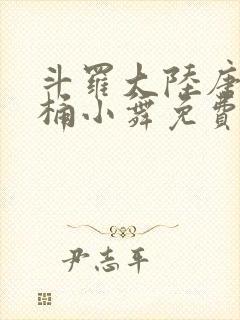 斗羅大陸唐
桶小舞免費
尹志平